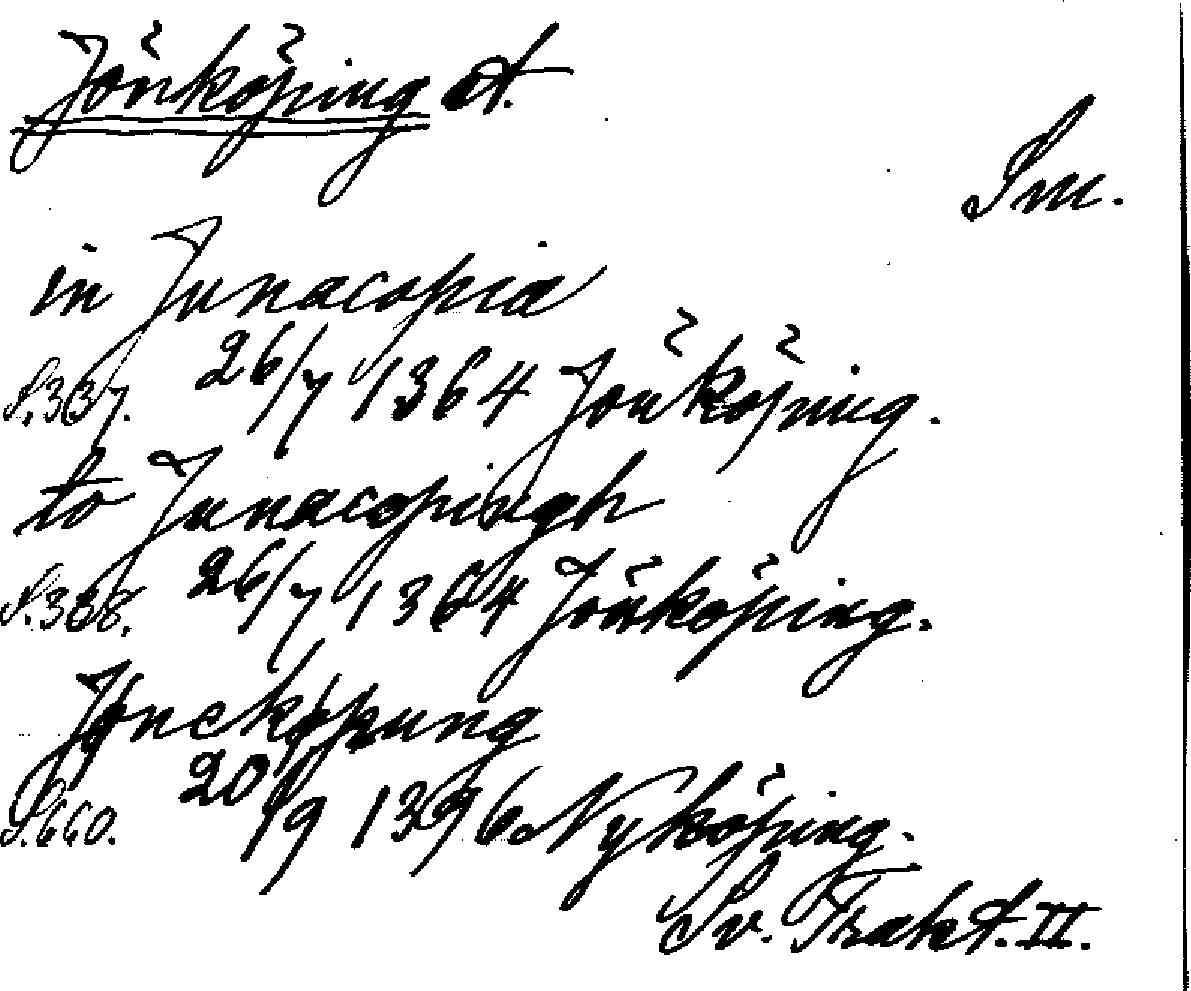 Jönköping st.
Sm.
in Junacopia
S. 337. 26/7 1364 Jönköping.
to Junacopingh
S. 338. 26/7 1364 Jönköping.
Jønekøpung
S. 660. 20/9 1396 Nyköping.
Sv. Trakt. II.